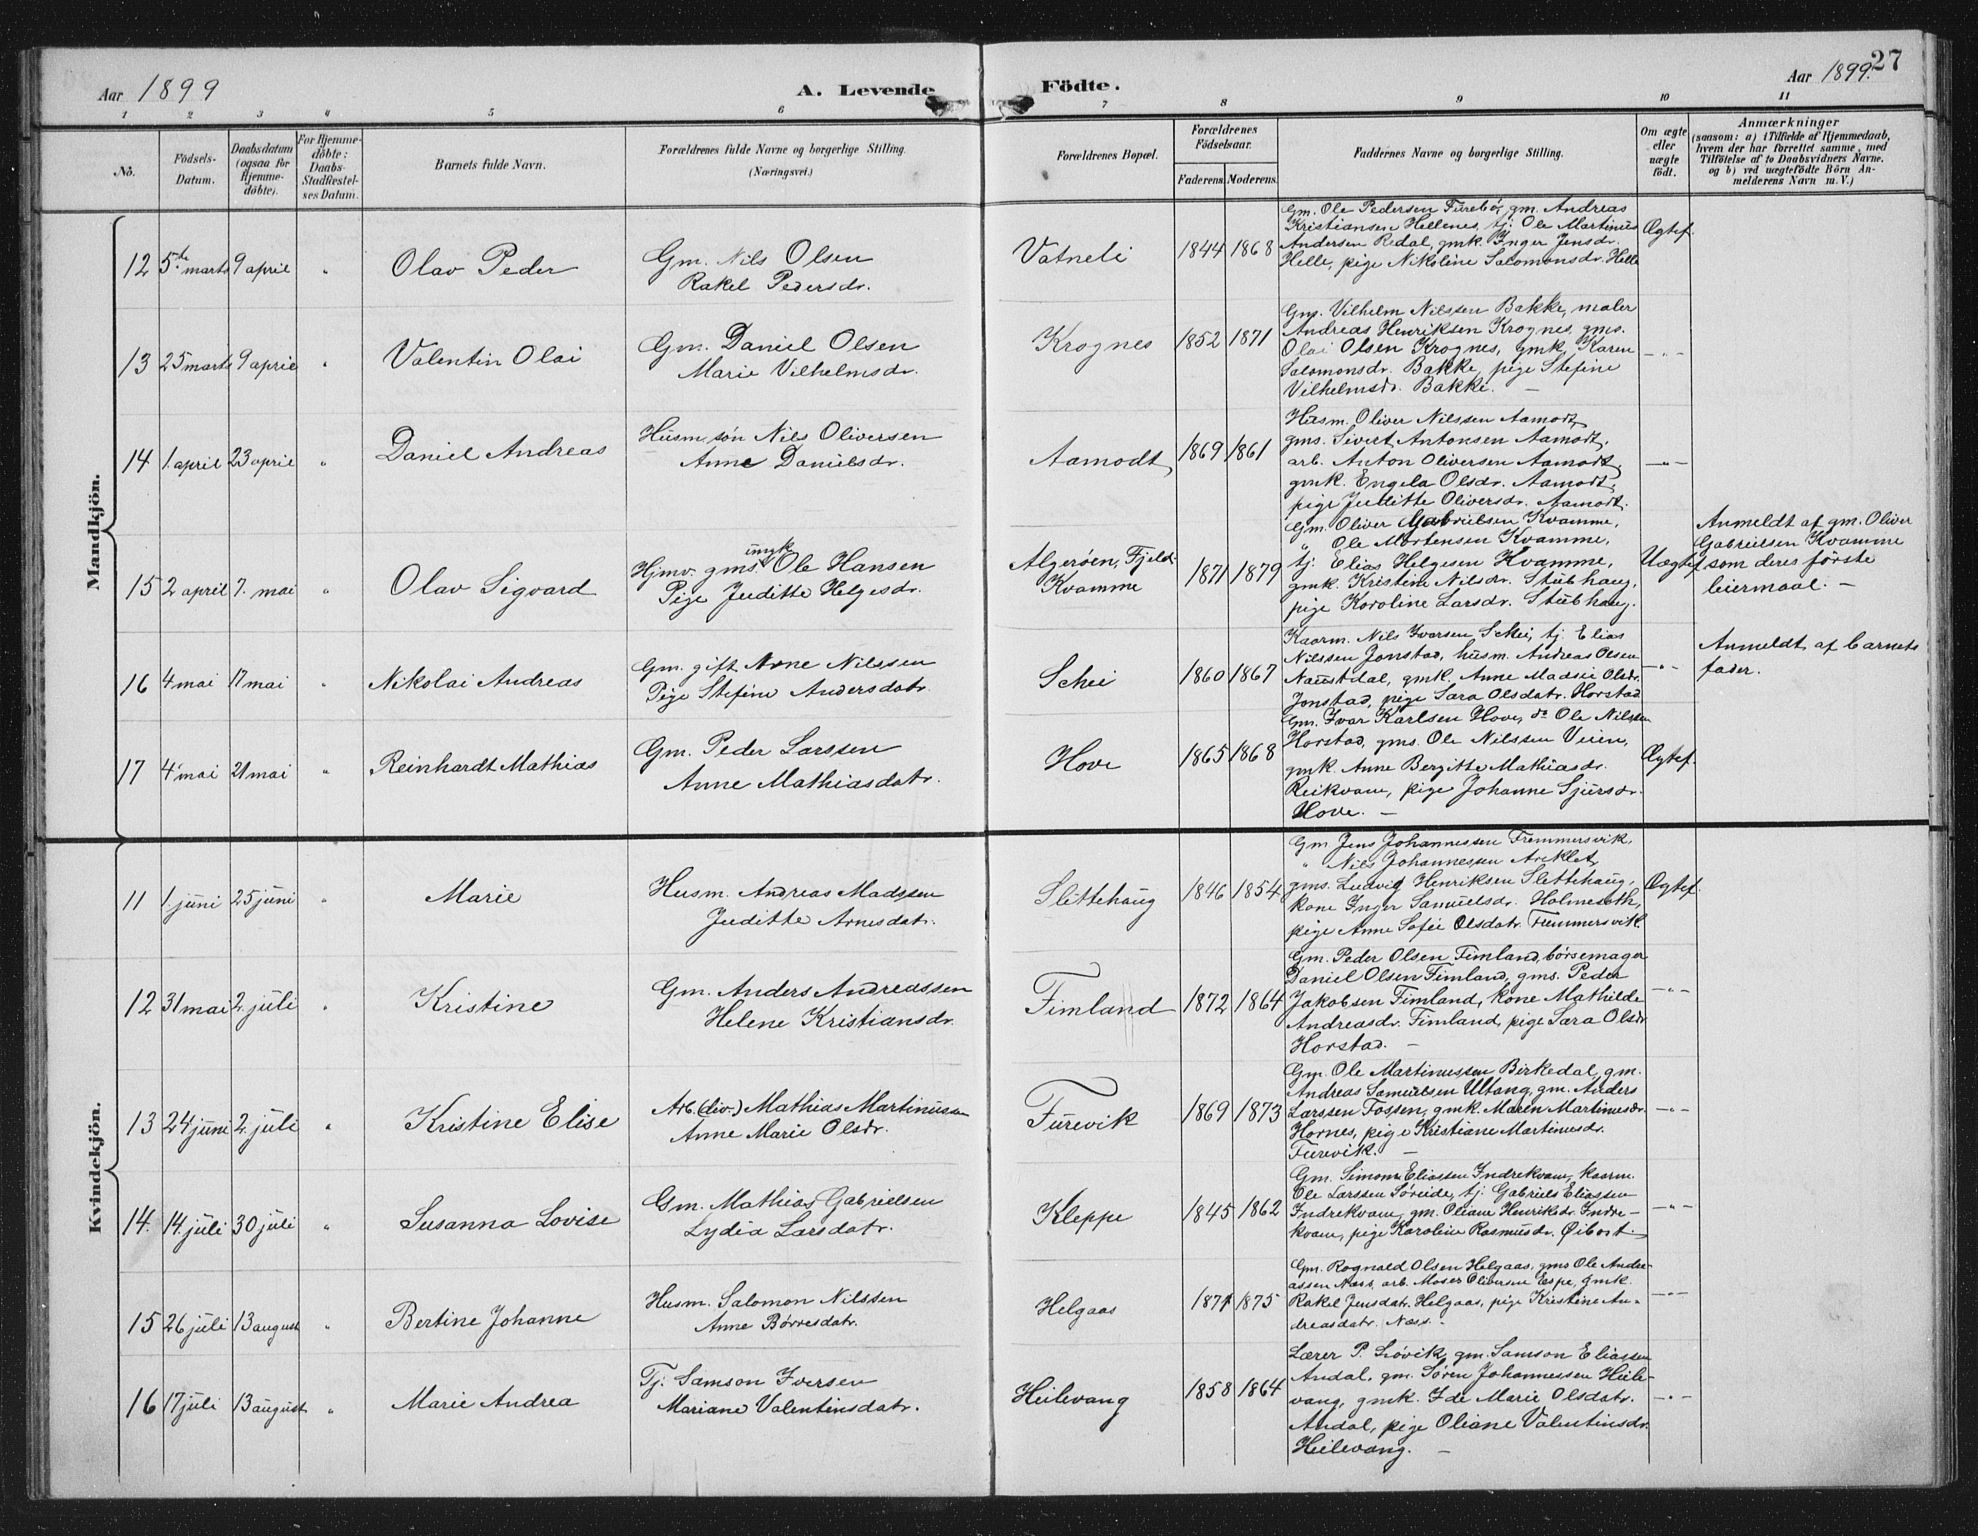 Aar 1899
A. Levende
Födte.
Aar 1899.
27
1 2 3 4 5 6 7 8 9 10 11
No.
Födsels-
Datum.
Daabsdatum
(ogsaa for
Hjemme-
döbte).
For Hjemme-
döbte:
Daabs-
Stadfæstel-
ses Datum.
Barnets fulde Navn.
Forældrenes fulde Navne og borgerlige Stilling.
(Næringsvei.)
Forældrenes Bopæl.
Forældrenes
Födselsaar.
Faderens. Moderens.
Faddernes Navne og borgerlige Stilling.
Om ægte
eller
uægte
födt.
Anmærkninger
(saasom: a) i Tilfælde af Hjemmedaab,
hvem der har forrettet samme, med
Tilföielse af to Daabsvidners Navne.
og b) ved uægtefödte Börn An-
melderens Navn m. V.)
Mandkjön.
12 5te marts 9 april " Olav Peder
Gm. Nils Olsen
Rakel Pedersdr.
Vatneli 1844 1868
Gm. Ole Pedersen Furebö, gm. Andreas
Kristiansen Hellenes, tj. Ole Martinus
Andersen Redal, gmk. Inger Jensdr.
Helle, pige Nikoline Salomonsdr. Helle
Ægtef.
13 25 marts 9 april " Valentin Olai
Gm. Daniel Olsen
Marie Vilhelmsdr.
Krognes 1852 1871
Gms. Vilhelm Nilssen Bakke, maler
Andreas Henriksen Krognes, gms.
Olai Olsen Krognes, gmk. Karen
Salomonsdr. Bakke, pige Stefine
Vilhelmsdr. Bakke. —
—"—
14 1. april 23 april " Daniel Andreas
Husm. søn Nils Oliversen
Anne Danielsdr.
Aamodt 1869 1861
Husm. Oliver Nilssen Aamodt,
gms. Sivert Antonsen Aamodt,
arb. Anton Oliversen Aamodt,
gmk. Engela Olsdr. Aamodt,
pige Juditte Oliversdr. Aamodt.
—"—
15 2 april 7. mai " Olav Sigvard
Hjmv. gms. ungk. Ole Hansen
Pige Juditte Helgesdr.
Algerøen, Fjeld
Kvamme
1871 1879
Gm. Oliver Gabrielsen Kvamme,
" Ole Mortensen Kvamme,
tj. Elias Helgesen Kvamme,
gmk. Kristine Nilsdr. Stubhaug,
pige Karoline Larsdr. Stubhaug.
Uægtef
Anmeldt af gm. Oliver
Gabrielsen Kvamme
som deres første
leiermaal. —
16 4 mai 17 mai " Nikolai Andreas
Gm. gift Arne Nilssen
Pige Stefine Andersdatr.
Schei 1860 1867
Kaarm. Nils Ivarsen Schei, tj. Elias
Nilssen Jonstad, husm. Andreas Olsen
Naustdal, gmk. Anne Madsie Olsdr.
Jonstad, pige Sara Olsdatr. Horstad
—"—
Anmeldt af barnets
fader.
17 4 mai 21 mai " Reinhardt Mathias
Gm. Peder Larssen
Anne Mathiasdatr.
Hove 1865 1868
Gm. Ivar Karlsen Hove, do Ole Nilssen
Horstad, gms. Ole Nilssen Veien,
gmk. Anne Bergitte Mathiasdr.
Reikvam, pige Johanne Sjursdr.
Hove. —
Ægtef.
Kvindekjön.
11 1. juni 25 juni " Marie
Husm. Andreas Madssen
Juditte Arnesdatr.
Slettehaug 1846 1854
Gm. Jens Johannessen Fremmersvik,
" Nils Johannessen Areklet,
gms. Ludvig Henriksen Slettehaug,
kone Inger Samuelsdr. Holmeseth,
pige Anne Sofie Olsdatr. Fremmersvik.
Ægtef.
12 31 mai 2. juli " Kristine
Gm. Anders Andreassen
Helene Kristiansdr.
Fimland 1872 1864
Gm. Peder Olsen Fimland, børsemager
Daniel Olsen Fimland, gms. Peder
Jakobsen Fimland, kone Mathilde
Andreasdr. Fimland, pige Sara Olsdr.
Horstad. —
—"—
13 24 juni 2. juli " Kristine Elise
Arb. (div.) Mathias Martinussen
Anne Marie Olsdr.
Furevik 1869 1873
Gm. Ole Martinussen Birkedal, gm.
Andreas Samuelsen Ultang, gm. Anders
Larssen Fossen, gmk. Maren Martinusdr.
Hornes, pige Kristiane Martinusdr.
Furevik. —
—"—
14. 14. juli 30 juli " Susanna Lovise
Gm. Mathias Gabrielsen
Lydia Larsdatr.
Kleppe 1845 1862
Gm. Simon Eliassen Indrekvam, kaarm.
Ole Larssen Søreide, tj. Gabriels Eliassen
Indrekvam, gm. Oliane Henriksdr. Indre-
kvam, pige Karoline Rasmusdr. Øibost.
—"—
15 26 juli 13 august " Bertine Johanne
Husm. Salomon Nilssen
Anne Børresdatr.
Helgaas 1871 1875
Gm. Rognald Olsen Helgaas, gms Ole Andre-
assen Næss, arb. Moses Oliversen Espe, gmk.
Rakel Jensdatr. Helgaas, pige Kristine An-
dreasdatr. Næss. —
—"—
16 17 juli 13 august " Marie Andrea
Tj. Samson Iversen
Mariane Valentinsdatr.
Heilevang 1858 1864
Lærer P. Løvik, gm. Samson Eliassen
Andal, gm. Søren Johannessen Heile-
vang, gmk. Ide Marie Olsdatr.
Andal, pige Oliane Valentinsdr.
Heilevang. —
—"—